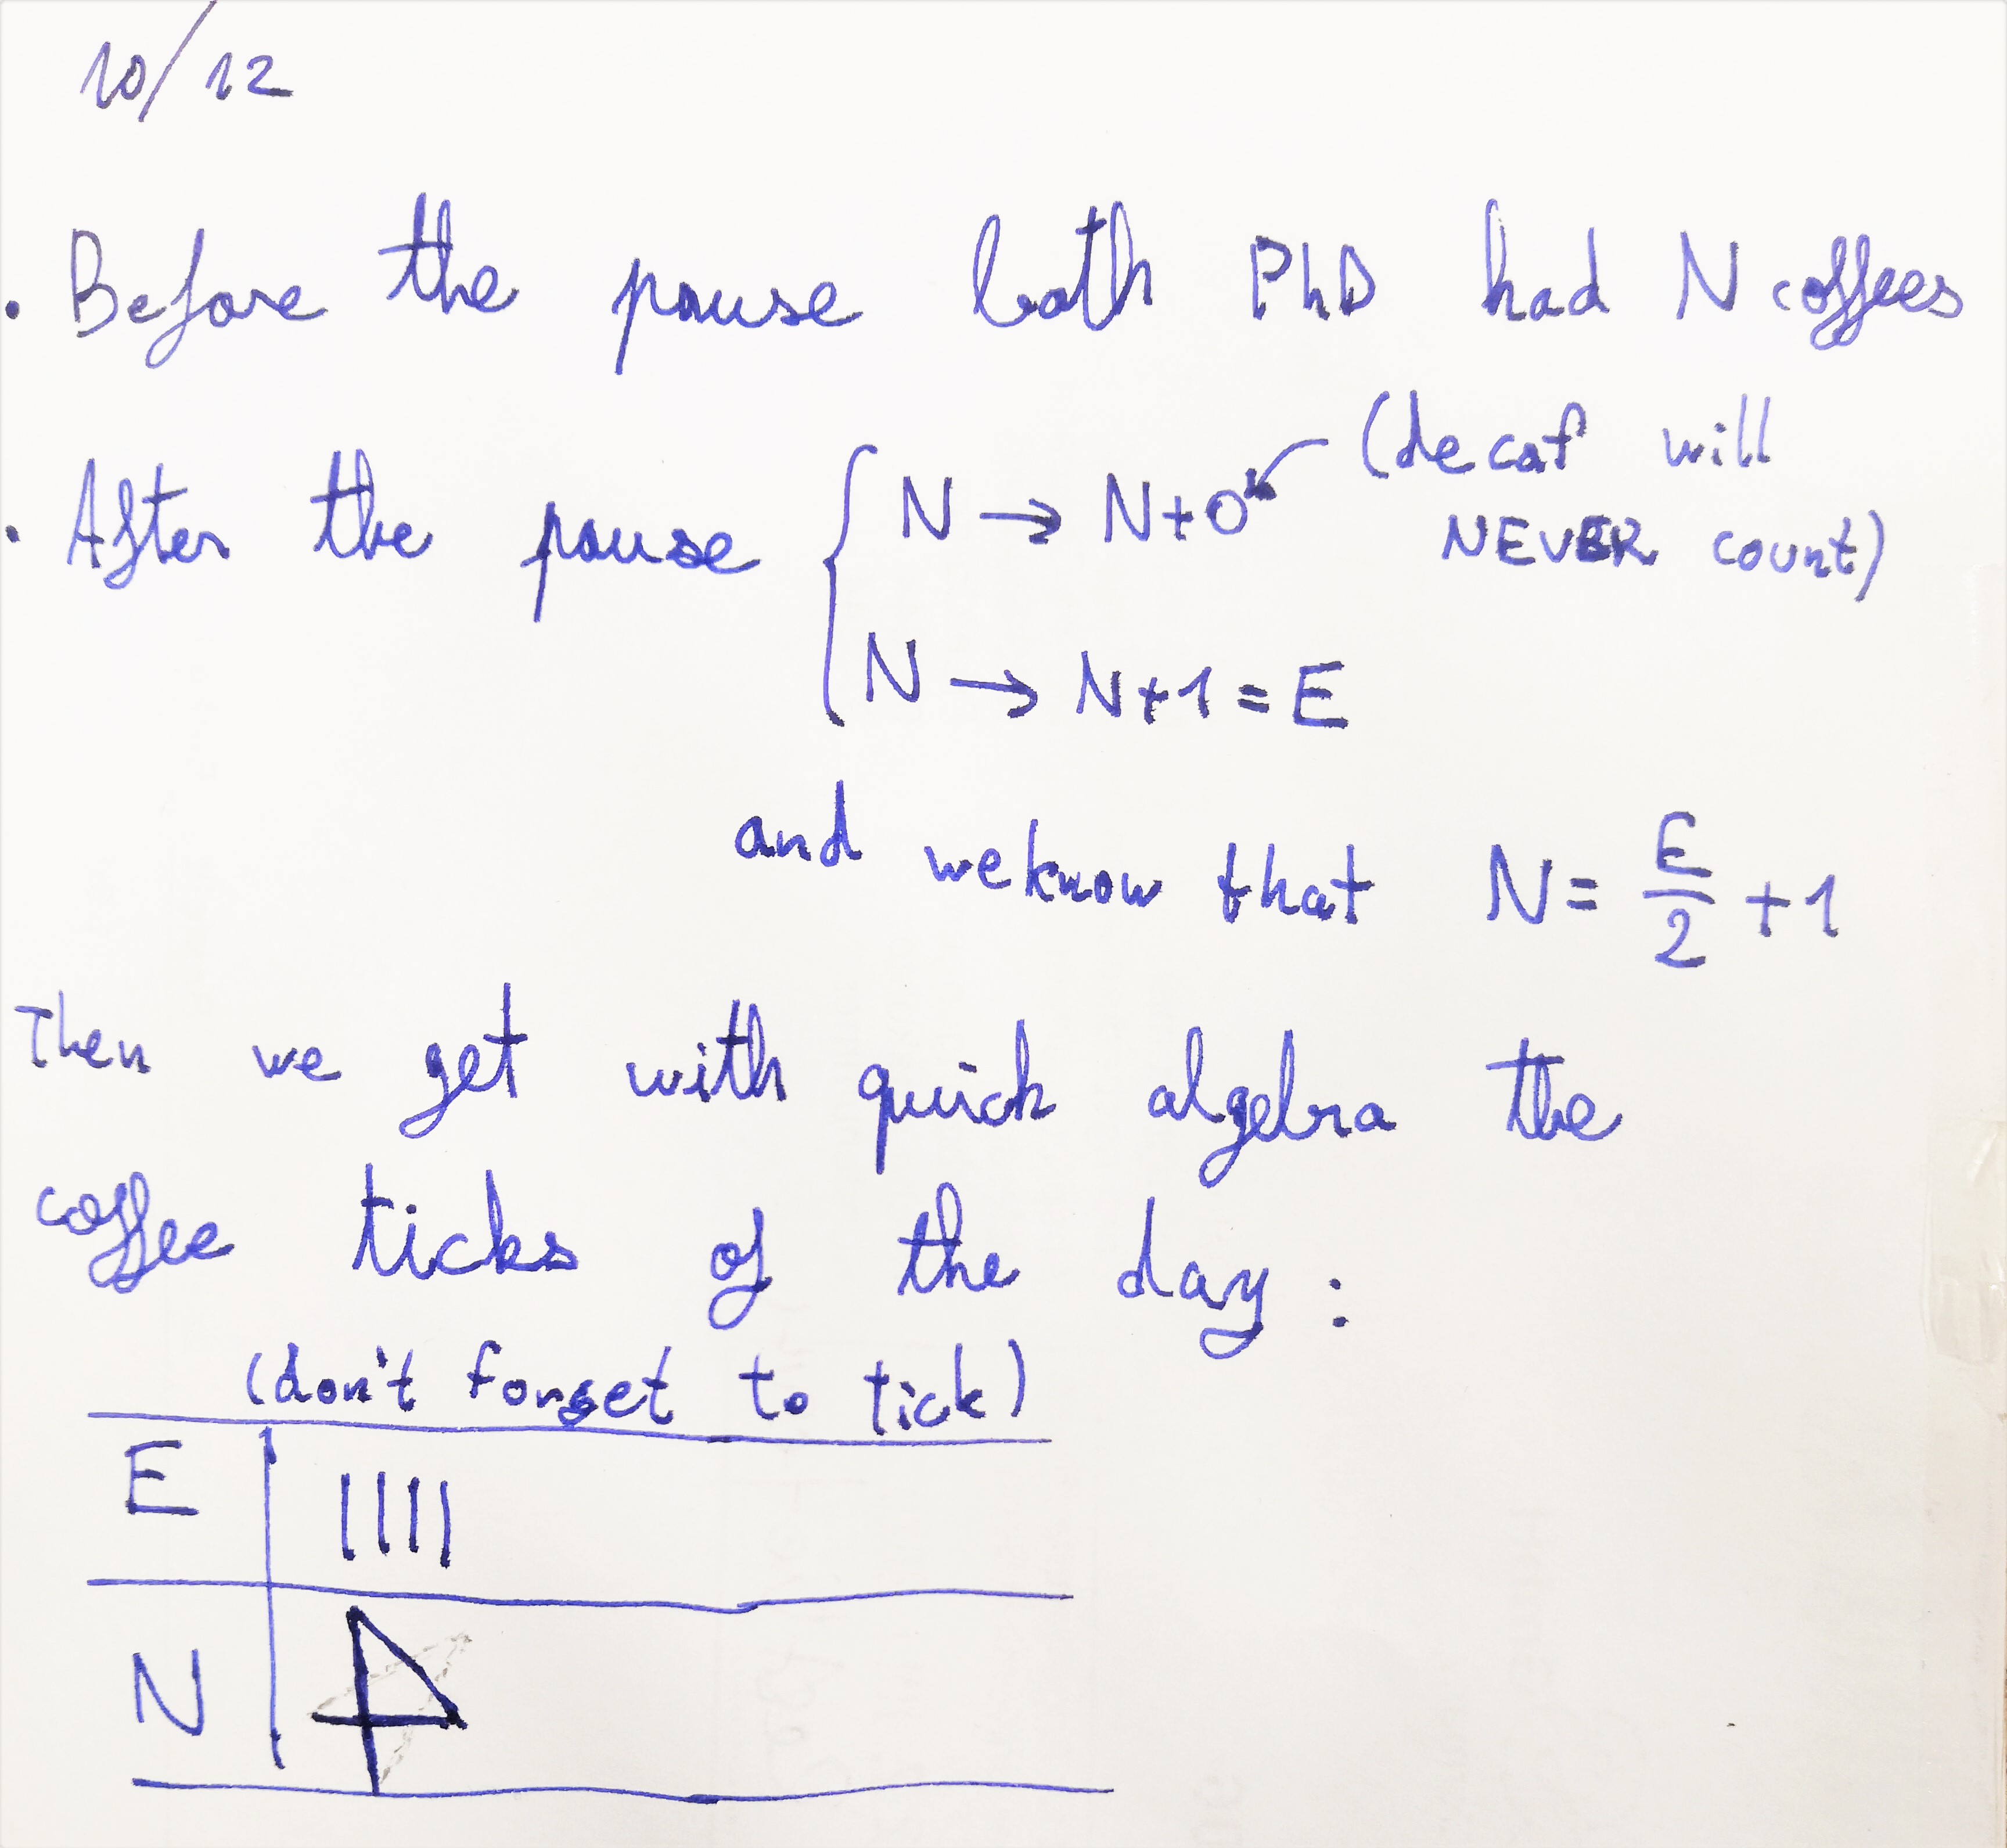 10/12
· Before the pause both PhD had N coffees
· After the pause { N → N+0 (decaf will
NEVER count)
N → N+1 = E
and we know that N = E/2 + 1
Then we get with quick algebra the
coffee ticks of the day :
(don't forget to tick)
E | ||||
N |